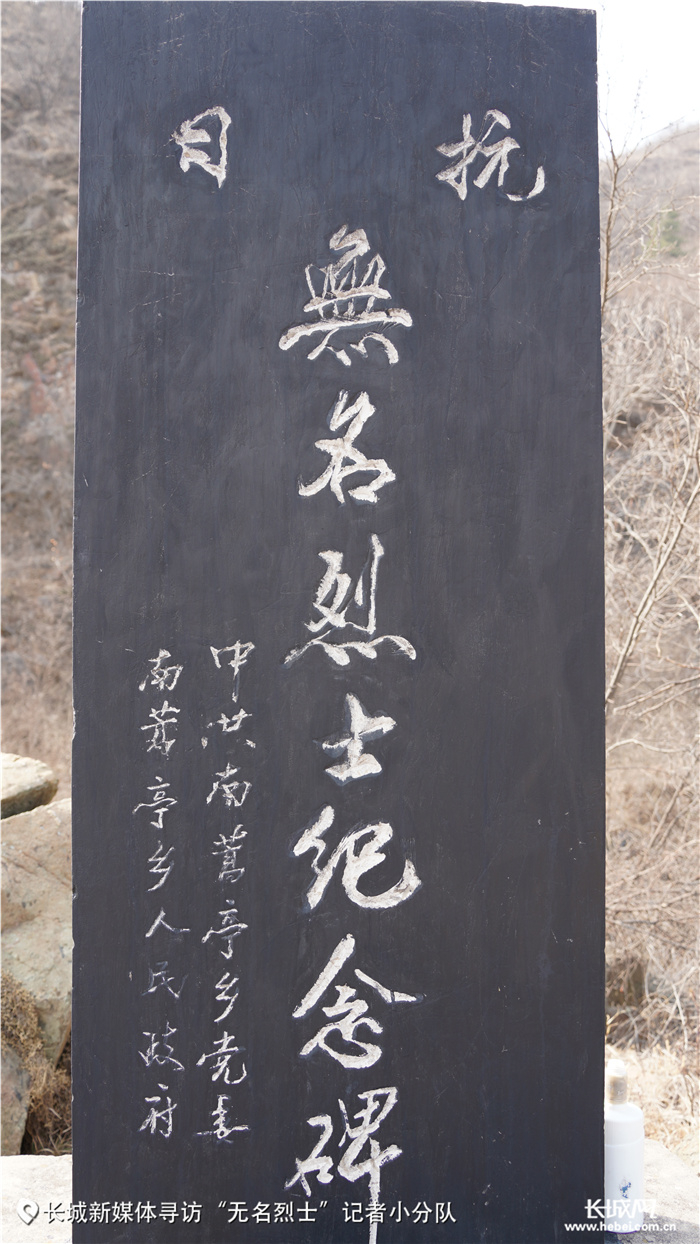 抗 日
無名烈士纪念碑
中共南蒿亭乡党委
南蒿亭乡人民政府
长城新媒体寻访“无名烈士”记者小分队
长城网
www.hebei.com.cn